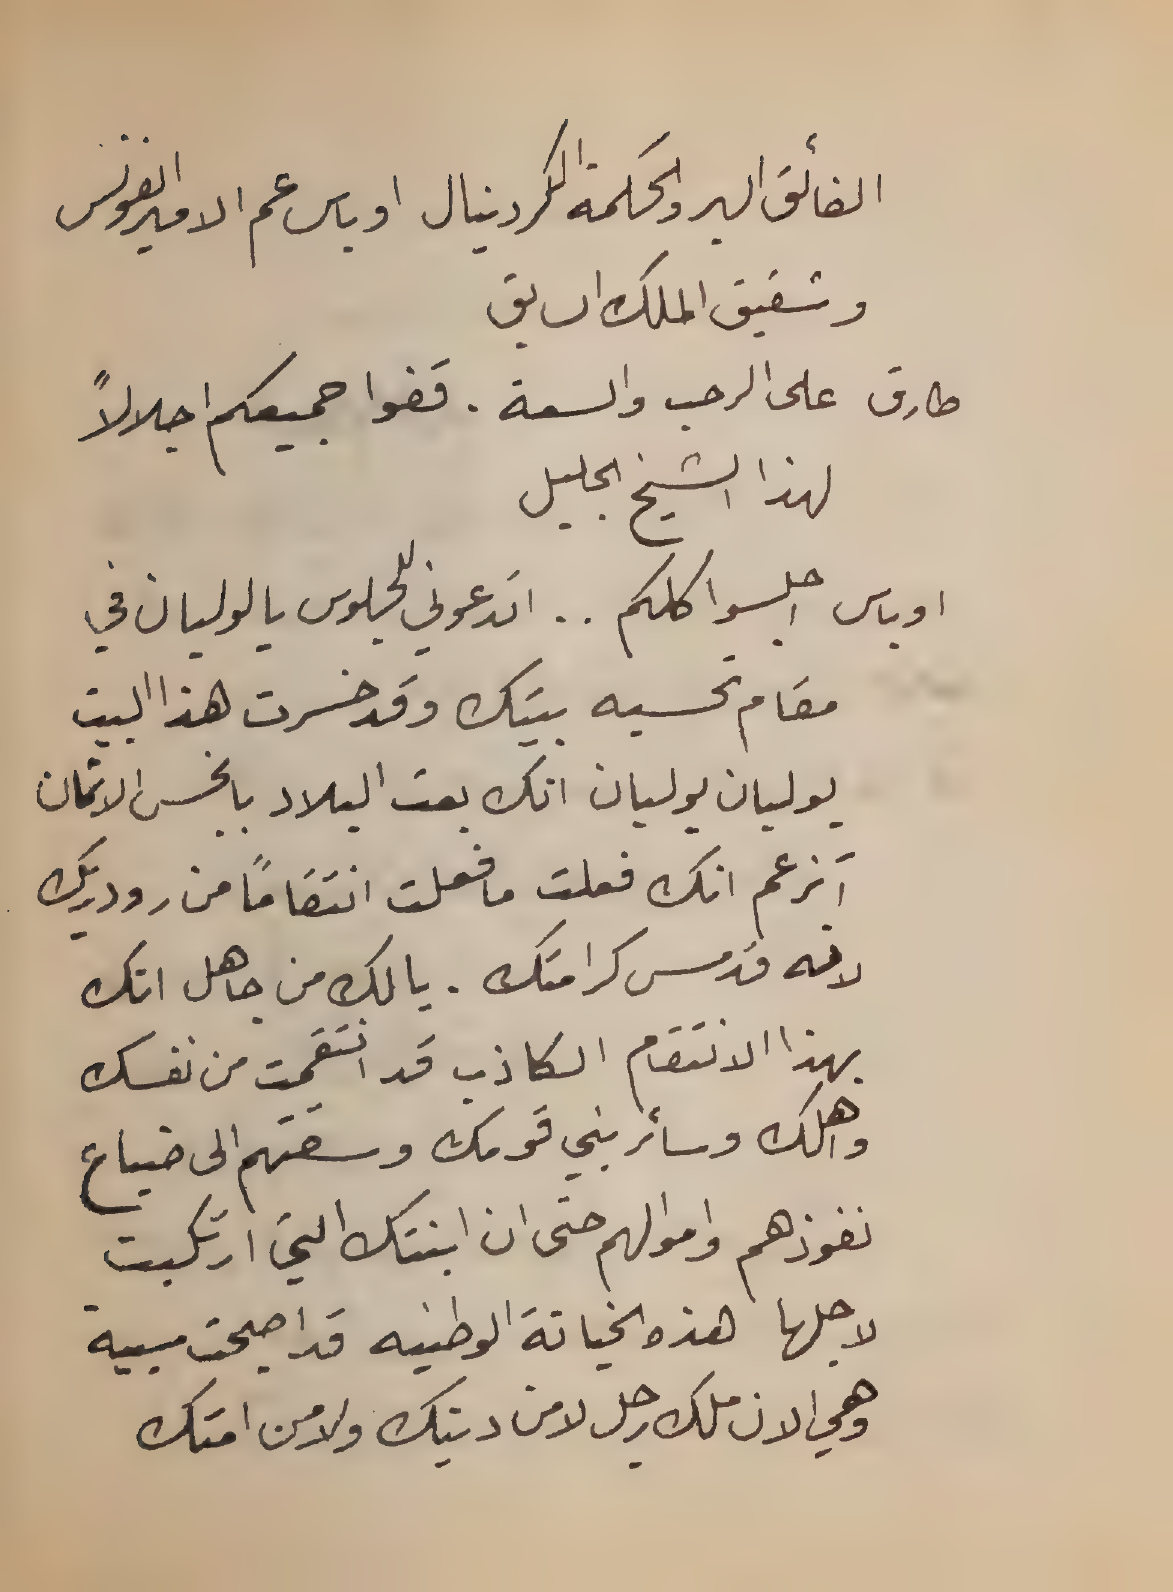 الفائق البر والحكمة الكردينال اوباس عم الامير الفونس
وشقيق الملك السابق
طارق على الرحب والسعة . قفوا جميعكم اجلالاً
لهذا الشيخ الجليل
اوباس اجلسوا كلكم . . اتدعوني للجلوس يا لوليان في
مقام تحسبه بيتك وقد خسرت هذا البيت
يوليان يوليان انك بعت البلاد بابخس الاثمان
اتزعم انك فعلت ما فعلت انتقاماً من رودريك
لانه قد مس كرامتك . يا لك من جاهل انك
بهذا الانتقام الكاذب قد انتقمت من نفسك
واهلك وسائر بني قومك وسقتهم الى ضياع
نفوذهم واموالهم حتى ان ابنتك التي ارتكبت
لاجلها هذه الخيانة الوطنيه قد اصبحت سبية
وهي الان ملك رجل لا من دينك ولا من امتك